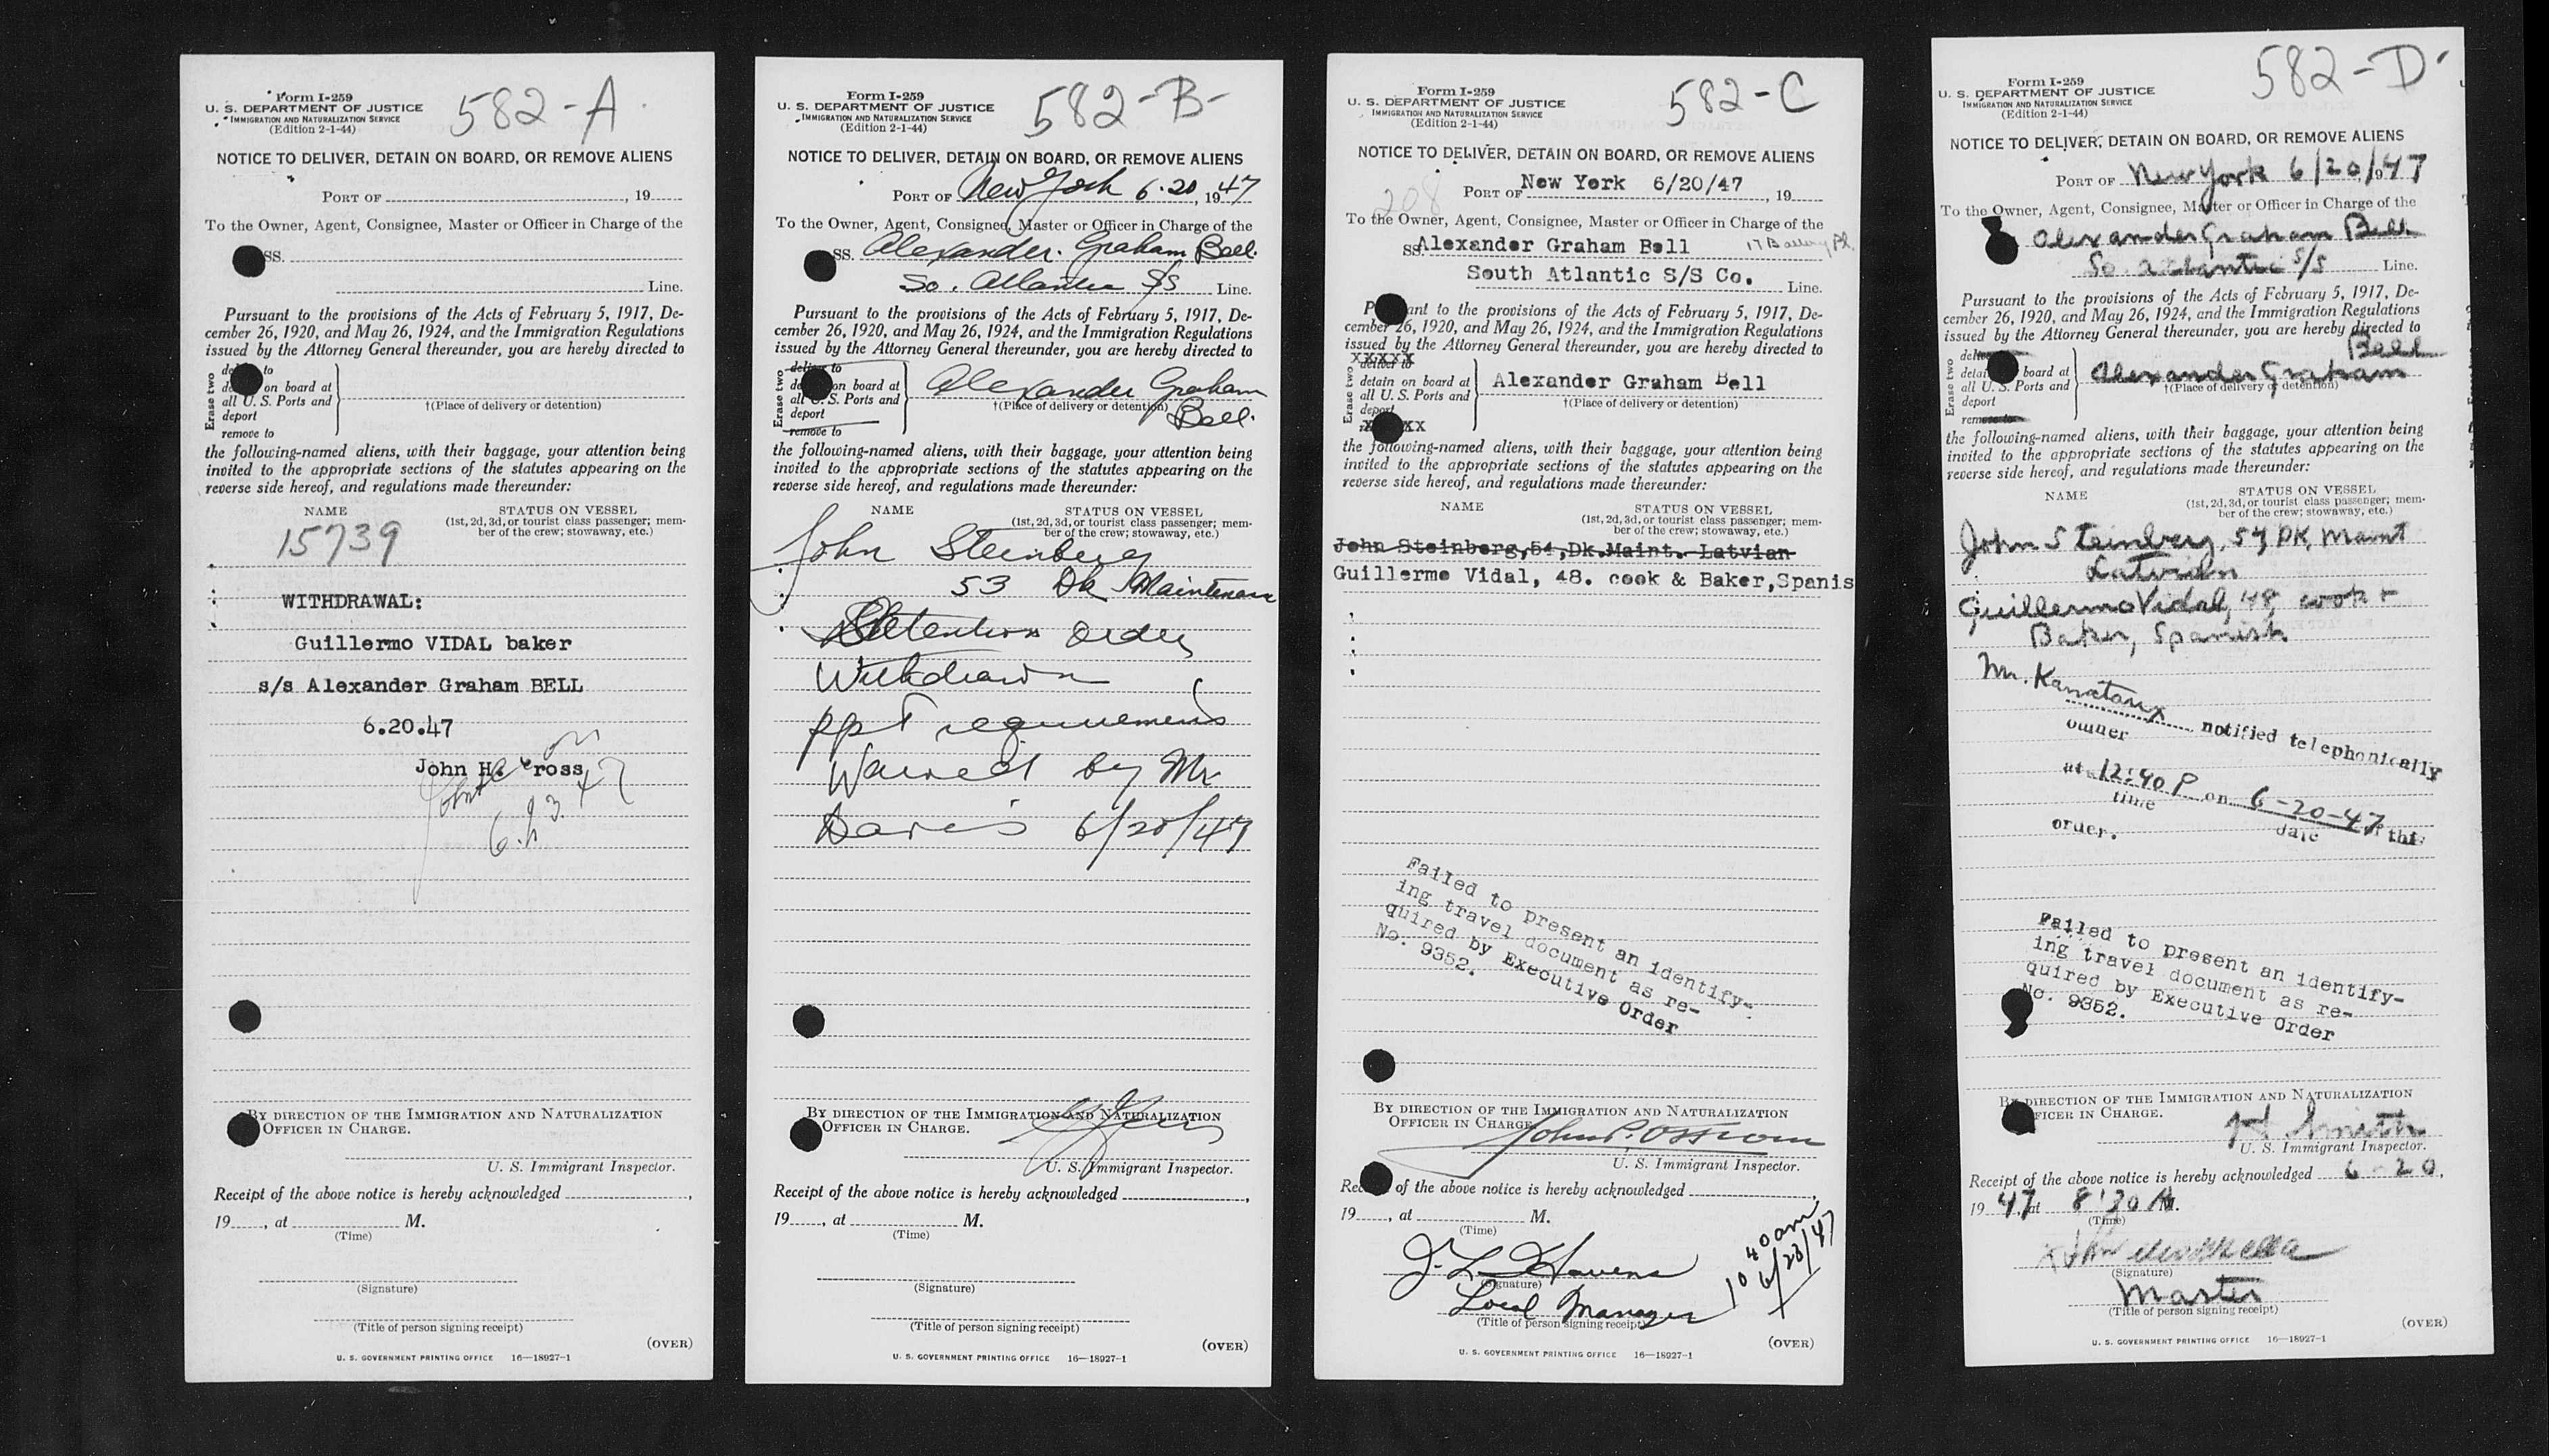 Form I-259
U. S. DEPARTMENT OF JUSTICE
IMMIGRATION AND NATURALIZATION SERVICE
(Edition 2-1-44)
582-A
NOTICE TO DELIVER, DETAIN ON BOARD, OR REMOVE ALIENS
PORT OF , 19
To the Owner, Agent, Consignee, Master or Officer in Charge of the
SS.
Line.
Pursuant to the provisions of the Acts of February 5, 1917, De-
cember 26, 1920, and May 26, 1924, and the Immigration Regulations
issued by the Attorney General thereunder, you are hereby directed to
Erase two
to
on board at
all U. S. Ports and
deport
remove to
†(Place of delivery or detention)
the following-named aliens, with their baggage, your attention being
invited to the appropriate sections of the statutes appearing on the
reverse side hereof, and regulations made thereunder:
NAME STATUS ON VESSEL
(1st, 2d, 3d, or tourist class passenger; mem-
ber of the crew; stowaway, etc.)
15739
WITHDRAWAL:
Guillermo VIDAL baker
s/s Alexander Graham BELL
6.20.47
John H. Cross
6.23.47
BY DIRECTION OF THE IMMIGRATION AND NATURALIZATION
OFFICER IN CHARGE.
U. S. Immigrant Inspector.
Receipt of the above notice is hereby acknowledged ,
19 , at M.
(Time)
(Signature)
(Title of person signing receipt)
(OVER)
U. S. GOVERNMENT PRINTING OFFICE 16—18927-1
Form I-259
U. S. DEPARTMENT OF JUSTICE
IMMIGRATION AND NATURALIZATION SERVICE
(Edition 2-1-44)
582-B-
NOTICE TO DELIVER, DETAIN ON BOARD, OR REMOVE ALIENS
PORT OF New York 6.20, 1947
To the Owner, Agent, Consignee, Master or Officer in Charge of the
SS. Alexander. Graham Bell.
So. Atlantic S/S Line.
Pursuant to the provisions of the Acts of February 5, 1917, De-
cember 26, 1920, and May 26, 1924, and the Immigration Regulations
issued by the Attorney General thereunder, you are hereby directed to
Erase two
deliver to
on board at
all U. S. Ports and
deport
remove to
Alexander Graham
†(Place of delivery or detention)
Bell.
the following-named aliens, with their baggage, your attention being
invited to the appropriate sections of the statutes appearing on the
reverse side hereof, and regulations made thereunder:
NAME STATUS ON VESSEL
(1st, 2d, 3d, or tourist class passenger; mem-
ber of the crew; stowaway, etc.)
John Steinberg
53 Dk Maintenance
Detention Order
Withdrawn
ppt requirements
Waived by Mr
Davis 6/20/47
BY DIRECTION OF THE IMMIGRATION AND NATURALIZATION
OFFICER IN CHARGE.
U. S. Immigrant Inspector.
Receipt of the above notice is hereby acknowledged ,
19 , at M.
(Time)
(Signature)
(Title of person signing receipt)
(OVER)
U. S. GOVERNMENT PRINTING OFFICE 16—18927-1
Form I-259
U. S. DEPARTMENT OF JUSTICE
IMMIGRATION AND NATURALIZATION SERVICE
(Edition 2-1-44)
582-C
NOTICE TO DELIVER, DETAIN ON BOARD, OR REMOVE ALIENS
208
PORT OF New York 6/20/47 , 19
To the Owner, Agent, Consignee, Master or Officer in Charge of the
SS. Alexander Graham Bell 17 Battery Pl.
South Atlantic S/S Co. Line.
Pursuant to the provisions of the Acts of February 5, 1917, De-
cember 26, 1920, and May 26, 1924, and the Immigration Regulations
issued by the Attorney General thereunder, you are hereby directed to
XXXXX
Erase two
deliver to
detain on board at
all U. S. Ports and
deport
Alexander Graham Bell
†(Place of delivery or detention)
the following-named aliens, with their baggage, your attention being
invited to the appropriate sections of the statutes appearing on the
reverse side hereof, and regulations made thereunder:
NAME STATUS ON VESSEL
(1st, 2d, 3d, or tourist class passenger; mem-
ber of the crew; stowaway, etc.)
John Steinberg,54,Dk.Maint. Latvian
Guillermo Vidal, 48. cook & Baker,Spanis
Failed to present an identify-
ing travel document as re-
quired by Executive Order
No. 9352.
BY DIRECTION OF THE IMMIGRATION AND NATURALIZATION
OFFICER IN CHARGE
U. S. Immigrant Inspector.
Receipt of the above notice is hereby acknowledged ,
19 , at M.
(Time)
10 40 am
6/23/47
J. L. Havens
(Signature)
Local Manager
(Title of person signing receipt)
(OVER)
U. S. GOVERNMENT PRINTING OFFICE 16—18927-1
Form I-259
U. S. DEPARTMENT OF JUSTICE
IMMIGRATION AND NATURALIZATION SERVICE
(Edition 2-1-44)
582-D
NOTICE TO DELIVER, DETAIN ON BOARD, OR REMOVE ALIENS
PORT OF New York 6/20/47
To the Owner, Agent, Consignee, Master or Officer in Charge of the
Alexander Graham Bell
So. Atlantic S/S Line.
Pursuant to the provisions of the Acts of February 5, 1917, De-
cember 26, 1920, and May 26, 1924, and the Immigration Regulations
issued by the Attorney General thereunder, you are hereby directed to
Erase two
board at
all U. S. Ports and
deport
remove to
Bell
Alexander Graham
†(Place of delivery or detention)
the following-named aliens, with their baggage, your attention being
invited to the appropriate sections of the statutes appearing on the
reverse side hereof, and regulations made thereunder:
NAME STATUS ON VESSEL
(1st, 2d, 3d, or tourist class passenger; mem-
ber of the crew; stowaway, etc.)
John Steinberg, 54 DK, Maint
Latvian
Guillermo Vidal, 48, cook +
Baker, Spanish
Mr. notified telephonically
owner
at 12:40 P on 6-20-47 this
time date
order.
Failed to present an identify-
ing travel document as re-
quired by Executive Order
No. 9352.
BY DIRECTION OF THE IMMIGRATION AND NATURALIZATION
OFFICER IN CHARGE.
Smith
U. S. Immigrant Inspector.
Receipt of the above notice is hereby acknowledged 6-20,
1947 at 8:30 AM.
(Time)
(Signature)
Master
(Title of person signing receipt)
(OVER)
U. S. GOVERNMENT PRINTING OFFICE 16—18927-1